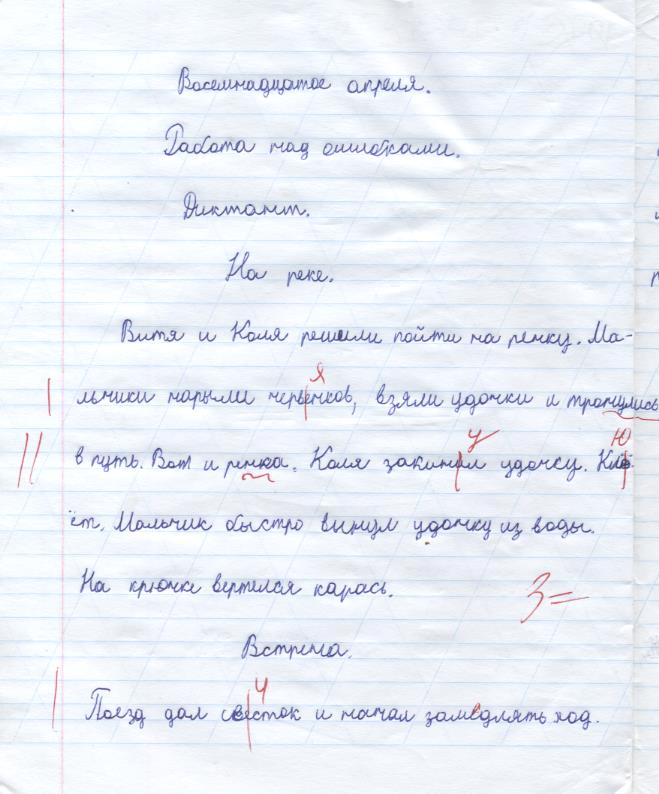 Восемнадцатое апреля.
Работа над ошибками.
Диктант.
На реке.
Витя и Коля решили пойти на речку. Ма-
я
льчики нарыли червенков, взяли удочки и тронулись
у ю
в путь. Вот и речка. Коля закинил удочку.
ёт. Мальчик быстро вынул удочку из воды.
На крючке вертелся карась.
3=
Встреча.
и
Поезд дал свесток и начал замедлять ход.